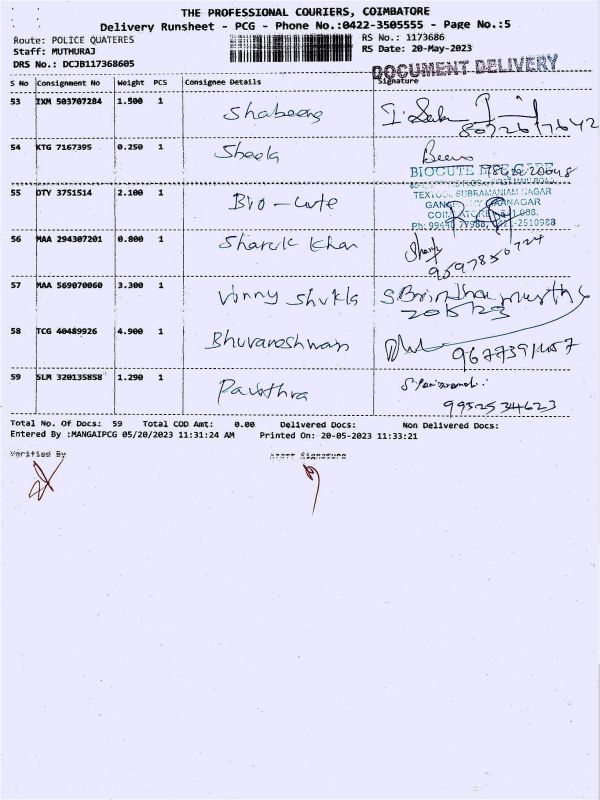 THE PROFESSIONAL COURIERS, COIMBATORE
Delivery Runsheet - PCG - Phone No.:0422-3505555 - Page No.:5
Route: POLICE QUATERES RS No.: 1173686
Staff: MUTHURAJ RS Date: 20-May-2023
DRS No.: DCJB117368605
DOCUMENT DELIVERY
S No Consignment No Weight PCS Consignee Details Signature
53 IXM 503707284 1.500 1 Shabeena
54 KTG 7167395 0.250 1 Sheela
BIOCUTE
55 OTY 3751514 2.100 1 Bio-cute
TEXTOOL SUBRAMANIAM NAGAR
56 MAA 294307201 0.800 1 Sharuk Khan
9597850724
57 MAA 569070060 3.300 1 Vinny Shukla
20/5/23
58 TCG 40489926 4.900 1 Bhuvaneshwari
59 SLM 320135858 1.290 1 Pavithra
9952534623
Total No. Of Docs: 59 Total COD Amt: 0.00 Delivered Docs: Non Delivered Docs:
Entered By :MANGAIPCG 05/20/2023 11:31:24 AM Printed On: 20-05-2023 11:33:21
Verified By Staff Signature